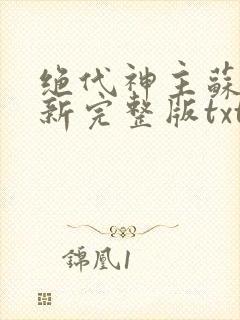 绝代神主蘇
新完整版txt
錦凰1